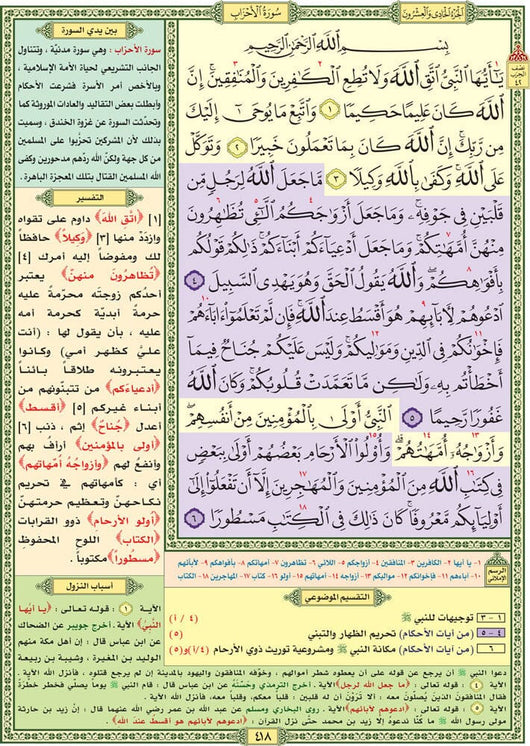 الجزء الحادي والعشرون
سورة الأحزاب
بين يدي السورة
بِسْمِ اللَّهِ الرَّحْمَٰنِ الرَّحِيمِ
يَٰٓأَيُّهَا ٱلنَّبِيُّ ٱتَّقِ ٱللَّهَ وَلَا تُطِعِ ٱلْكَٰفِرِينَ وَٱلْمُنَٰفِقِينَ إِنَّ
ٱللَّهَ كَانَ عَلِيمًا حَكِيمًا ١ وَٱتَّبِعْ مَا يُوحَىٰٓ إِلَيْكَ
مِن رَّبِّكَ إِنَّ ٱللَّهَ كَانَ بِمَا تَعْمَلُونَ خَبِيرًا ٢ وَتَوَكَّلْ
عَلَى ٱللَّهِ وَكَفَىٰ بِٱللَّهِ وَكِيلًا ٣ مَّا جَعَلَ ٱللَّهُ لِرَجُلٍ مِّن
قَلْبَيْنِ فِي جَوْفِهِۦ وَمَا جَعَلَ أَزْوَٰجَكُمُ ٱلَّٰٓـِٔي تُظَٰهِرُونَ
مِنْهُنَّ أُمَّهَٰتِكُمْ وَمَا جَعَلَ أَدْعِيَآءَكُمْ أَبْنَآءَكُمْ ذَٰلِكُمْ قَوْلُكُم
بِأَفْوَٰهِكُمْ وَٱللَّهُ يَقُولُ ٱلْحَقَّ وَهُوَ يَهْدِي ٱلسَّبِيلَ ٤
ٱدْعُوهُمْ لِأٓبَآئِهِمْ هُوَ أَقْسَطُ عِندَ ٱللَّهِ فَإِن لَّمْ تَعْلَمُوٓا۟ ءَابَآءَهُمْ
فَإِخْوَٰنُكُمْ فِي ٱلدِّينِ وَمَوَٰلِيكُمْ وَلَيْسَ عَلَيْكُمْ جُنَاحٌ فِيمَآ
أَخْطَأْتُم بِهِۦ وَلَٰكِن مَّا تَعَمَّدَتْ قُلُوبُكُمْ وَكَانَ ٱللَّهُ
غَفُورًا رَّحِيمًا ٥ ٱلنَّبِيُّ أَوْلَىٰ بِٱلْمُؤْمِنِينَ مِنْ أَنفُسِهِمْ
وَأَزْوَٰجُهُۥٓ أُمَّهَٰتُهُمْ وَأُو۟لُوا۟ ٱلْأَرْحَامِ بَعْضُهُمْ أَوْلَىٰ بِبَعْضٍ
فِي كِتَٰبِ ٱللَّهِ مِنَ ٱلْمُؤْمِنِينَ وَٱلْمُهَٰجِرِينَ إِلَّآ أَن تَفْعَلُوٓا۟ إِلَىٰٓ
أَوْلِيَآئِكُم مَّعْرُوفًا كَانَ ذَٰلِكَ فِي ٱلْكِتَٰبِ مَسْطُورًا ٦
سورة الأحزاب : وهي سورة مدنيّة ، وتتناول
الجانب التشريعي لحياة الأمة الإسلامية ،
وبالأخص أمر الأسرة فشرعت الأحكام
وأبطلت بعض التقاليد والعادات الموروثة كما
وتحدّثت السورة عن غزوة الخندق ، وسميت
بذلك لأن المشركين تحزّبوا على المسلمين
من كل جهة ولكنّ الله ردّهم مدحورين وكفى
الله المسلمين القتال بتلك المعجزة الباهرة .
التفسير
[١] ﴿اتّق الله﴾ داوم على تقواه
وازدَدْ منها [٣] ﴿وكيلاً﴾ حافظاً
لك ومفوضاً إليه أمرك [٤]
﴿تظاهرون منهنّ﴾ يعتبر
أحدكم زوجته محرّمة عليه
حرمةً أبديّة كحرمة أمه
عليه ، بأن يقول لها : (أنت
عليّ كظهر أمي) وكانوا
يعتبرونه طلاقاً بائناً
﴿أدعياءكم﴾ من تتبنّونهم من
أبناء غيركم [٥] ﴿أقسط﴾
أعدل ﴿جُناح﴾ إثم ، ذنب [٦]
﴿أولى بالمؤمنين﴾ أرأف بهم
وأنفع لهم ﴿وأزواجُه أمهاتهم﴾
أي : كأمهاتهم في تحريم
نكاحهنّ وتعظيم حرمتهنّ
﴿أولو الأرحام﴾ ذوو القرابات
﴿الكتاب﴾ اللوح المحفوظ
﴿مسطوراً﴾ مكتوباً .
الرسم الإملائي
١- يا أيها ٢- الكافرين ٣- المنافقين ٤- أزواجكم ٥- اللائي ٦- تظاهرون ٧- أمهاتكم ٨- بأفواهكم ٩- لآبائهم
١٠- آباءهم ١١- فإخوانكم ١٢- مواليكم ١٣- أزواجه ١٤- أمهاتهم ١٥- أولو ١٦- كتاب ١٧- المهاجرين ١٨- الكتاب
التقسيم الموضوعي
١ - ٣ توجيهات للنبي ﷺ (٤/أ)
٤ - ٥ (من آيات الأحكام) تحريم الظهار والتبني (٥)
٦ (من آيات الأحكام) مكانة النبي ﷺ ومشروعية توريث ذوي الأرحام (٤/أ) و(٥)
أسباب النزول
الآية ١ : قوله تعالى : ﴿يا أيّها
النبيّ﴾ الآية . أخرج جويبر عن الضحاك
عن ابن عباس قال : إن أهل مكة منهم
الوليد بن المغيرة ، وشيبة بن ربيعة
دعوا النبي ﷺ أن يرجع عن قوله على أن يعطوه شطر أموالهم ، وخوّفه المنافقون واليهود بالمدينة إن لم يرجع قتلوه ، فأنزل الله الآية .
الآية ٤ : قوله تعالى : ﴿ما جعل الله لرجل﴾ الآية . أخرج الترمذي وحسّنه عن ابن عباس قال : قام النبي ﷺ يوماً يصلي فخطر خطرة
فقال المنافقون الذين يُصلّون معه : ألا تَرَوْن أن له قلبين : قلباً معكم، وقلباً معه، فأنزل الله الآية .
الآية ٥ : قوله تعالى : ﴿ادعوهم لآبائهم﴾ الآية . روى البخاري ومسلم عن عبد الله بن عمر رضي الله عنهما قال : إنّ زيد بن حارثة
مولى رسول الله ﷺ ما كنّا ندعوهُ إلّا زيد بن محمد حتّى نزل القرآن : ﴿ادعوهم لآبائهم هو أقسط عند الله﴾ .
٤١٨